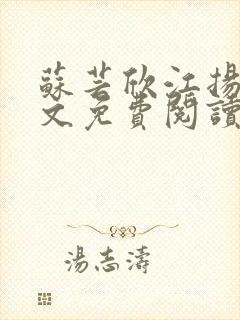 蘇芸欣江揚
文免費閱讀
湯志濤